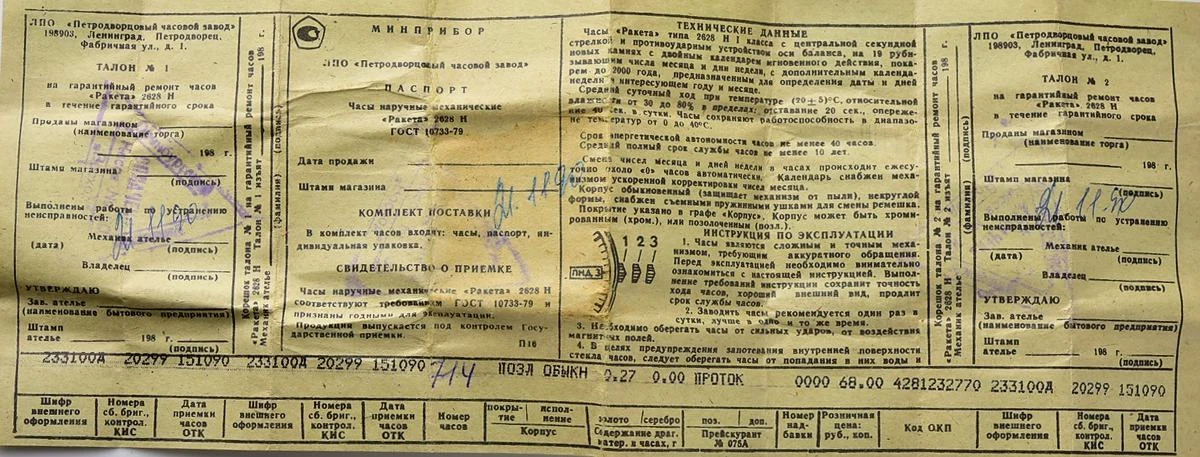 ЛПО «Петродворцовый часовой завод»
198903, Ленинград, Петродворец,
Фабричная ул., д. 1.
ТАЛОН № 1
на гарантийный ремонт часов
«Ракета» 2628 Н
в течение гарантийного срока
Проданы магазином
(наименование торга)
198 г.
Штамп магазина
(подпись)
21.11.90
Выполнены работы по устранению
неисправностей:
Механик ателье
(дата) (подпись)
Владелец
(подпись)
УТВЕРЖДАЮ
Зав. ателье
(наименование бытового предприятия)
Штамп
ателье 198 г.
(подпись)
Корешок талона № 1 на гарантийный ремонт часов
«Ракета» 2628 Н Талон № 1 изъят 198 г.
Механик ателье
(фамилия) (подпись)
МИНПРИБОР
ЛПО «Петродворцовый часовой завод»
ПАСПОРТ
Часы наручные механические
«Ракета» 2628 Н
ГОСТ 10733-79
Дата продажи
Штамп магазина
21.11.90
КОМПЛЕКТ ПОСТАВКИ
В комплект часов входят: часы, паспорт, ин-
дивидуальная упаковка.
СВИДЕТЕЛЬСТВО О ПРИЕМКЕ
Часы наручные механические «Ракета» 2628 Н
соответствуют требованиям ГОСТ 10733-79 и
признаны годными для эксплуатации.
Продукция выпускается под контролем Госу-
дарственной приемки.
П16
ТЕХНИЧЕСКИЕ ДАННЫЕ
Часы «Ракета» типа 2628 Н I класса с центральной секундной
стрелкой и противоударным устройством оси баланса, на 19 руби-
новых камнях с двойным календарем мгновенного действия, пока-
зывающим числа месяца и дни недели, с дополнительным календа-
рем до 2000 года, предназначенным для определения даты и дней
недели в интересующем году и месяце.
Средний суточный ход при температуре (20±5)°С, относительной
влажности от 30 до 80% в пределах: отставание 20 сек., опереже-
ние 40 сек в сутки. Часы сохраняют работоспособность в диапазо-
не температур от 0 до 40°С.
Срок энергетической автономности часов не менее 40 часов.
Средний полный срок службы часов не менее 10 лет.
Смена чисел месяца и дней недели в часах происходит ежесу-
точно около «0» часов автоматически. Календарь снабжен меха-
низмом ускоренной корректировки чисел месяца.
Корпус обыкновенный (защищает механизм от пыли), некруглой
формы, снабжен съемными пружинными ушками для смены ремешка.
Покрытие указано в графе «Корпус». Корпус может быть хроми-
рованным (хром.), или позолоченным (позл.).
ИНСТРУКЦИЯ ПО ЭКСПЛУАТАЦИИ
1 2 3
1. Часы являются сложным и точным меха-
низмом, требующим аккуратного обращения.
Перед эксплуатацией необходимо внимательно
ознакомиться с настоящей инструкцией. Выпол-
нение требований инструкции сохранит точность
хода часов, хороший внешний вид, продлит
срок службы часов.
2. Заводить часы рекомендуется один раз в
сутки, лучше в одно и то же время.
3. Необходимо оберегать часы от сильных ударов, от воздействия
магнитных полей.
4. В целях предупреждения запотевания внутренней поверхности
стекла часов, следует оберегать часы от попадания в них воды и
Корешок талона № 2 на гарантийный ремонт часов
«Ракета» 2628 Н Талон № 2 изъят 198 г.
Механик ателье
(фамилия) (подпись)
ЛПО «Петродворцовый часовой завод»
198903, Ленинград, Петродворец,
Фабричная ул., д. 1.
ТАЛОН № 2
на гарантийный ремонт часов
«Ракета» 2628 Н
в течение гарантийного срока
Проданы магазином
(наименование торга)
198 г.
Штамп магазина
(подпись)
21.11.90
Выполнены работы по устранению
неисправностей:
Механик ателье
(дата) (подпись)
Владелец
(подпись)
УТВЕРЖДАЮ
Зав. ателье
(наименование бытового предприятия)
Штамп
ателье 198 г.
(подпись)
233100Д 20299 151090 233100Д 20299 151090 714 ПОЗЛ ОБЫКН 0.27 0.00 ПРОТОК 0000 68.00 4281232770 233100Д 20299 151090
Шифр внешнего оформления
Номера сб. бриг., контрол. КИС
Дата приемки часов ОТК
Шифр внешнего оформления
Номера сб. бриг., контрол. КИС
Дата приемки часов ОТК
Номер часов
покрытие исполнение
Корпус
золото серебро
Содержание драг. матер. в часах, г
поз. доп.
Прейскурант № 075А
Номер надбавки
Розничная цена: руб., коп.
Код ОКП
Шифр внешнего оформления
Номера сб. бриг., контрол. КИС
Дата приемки часов ОТК